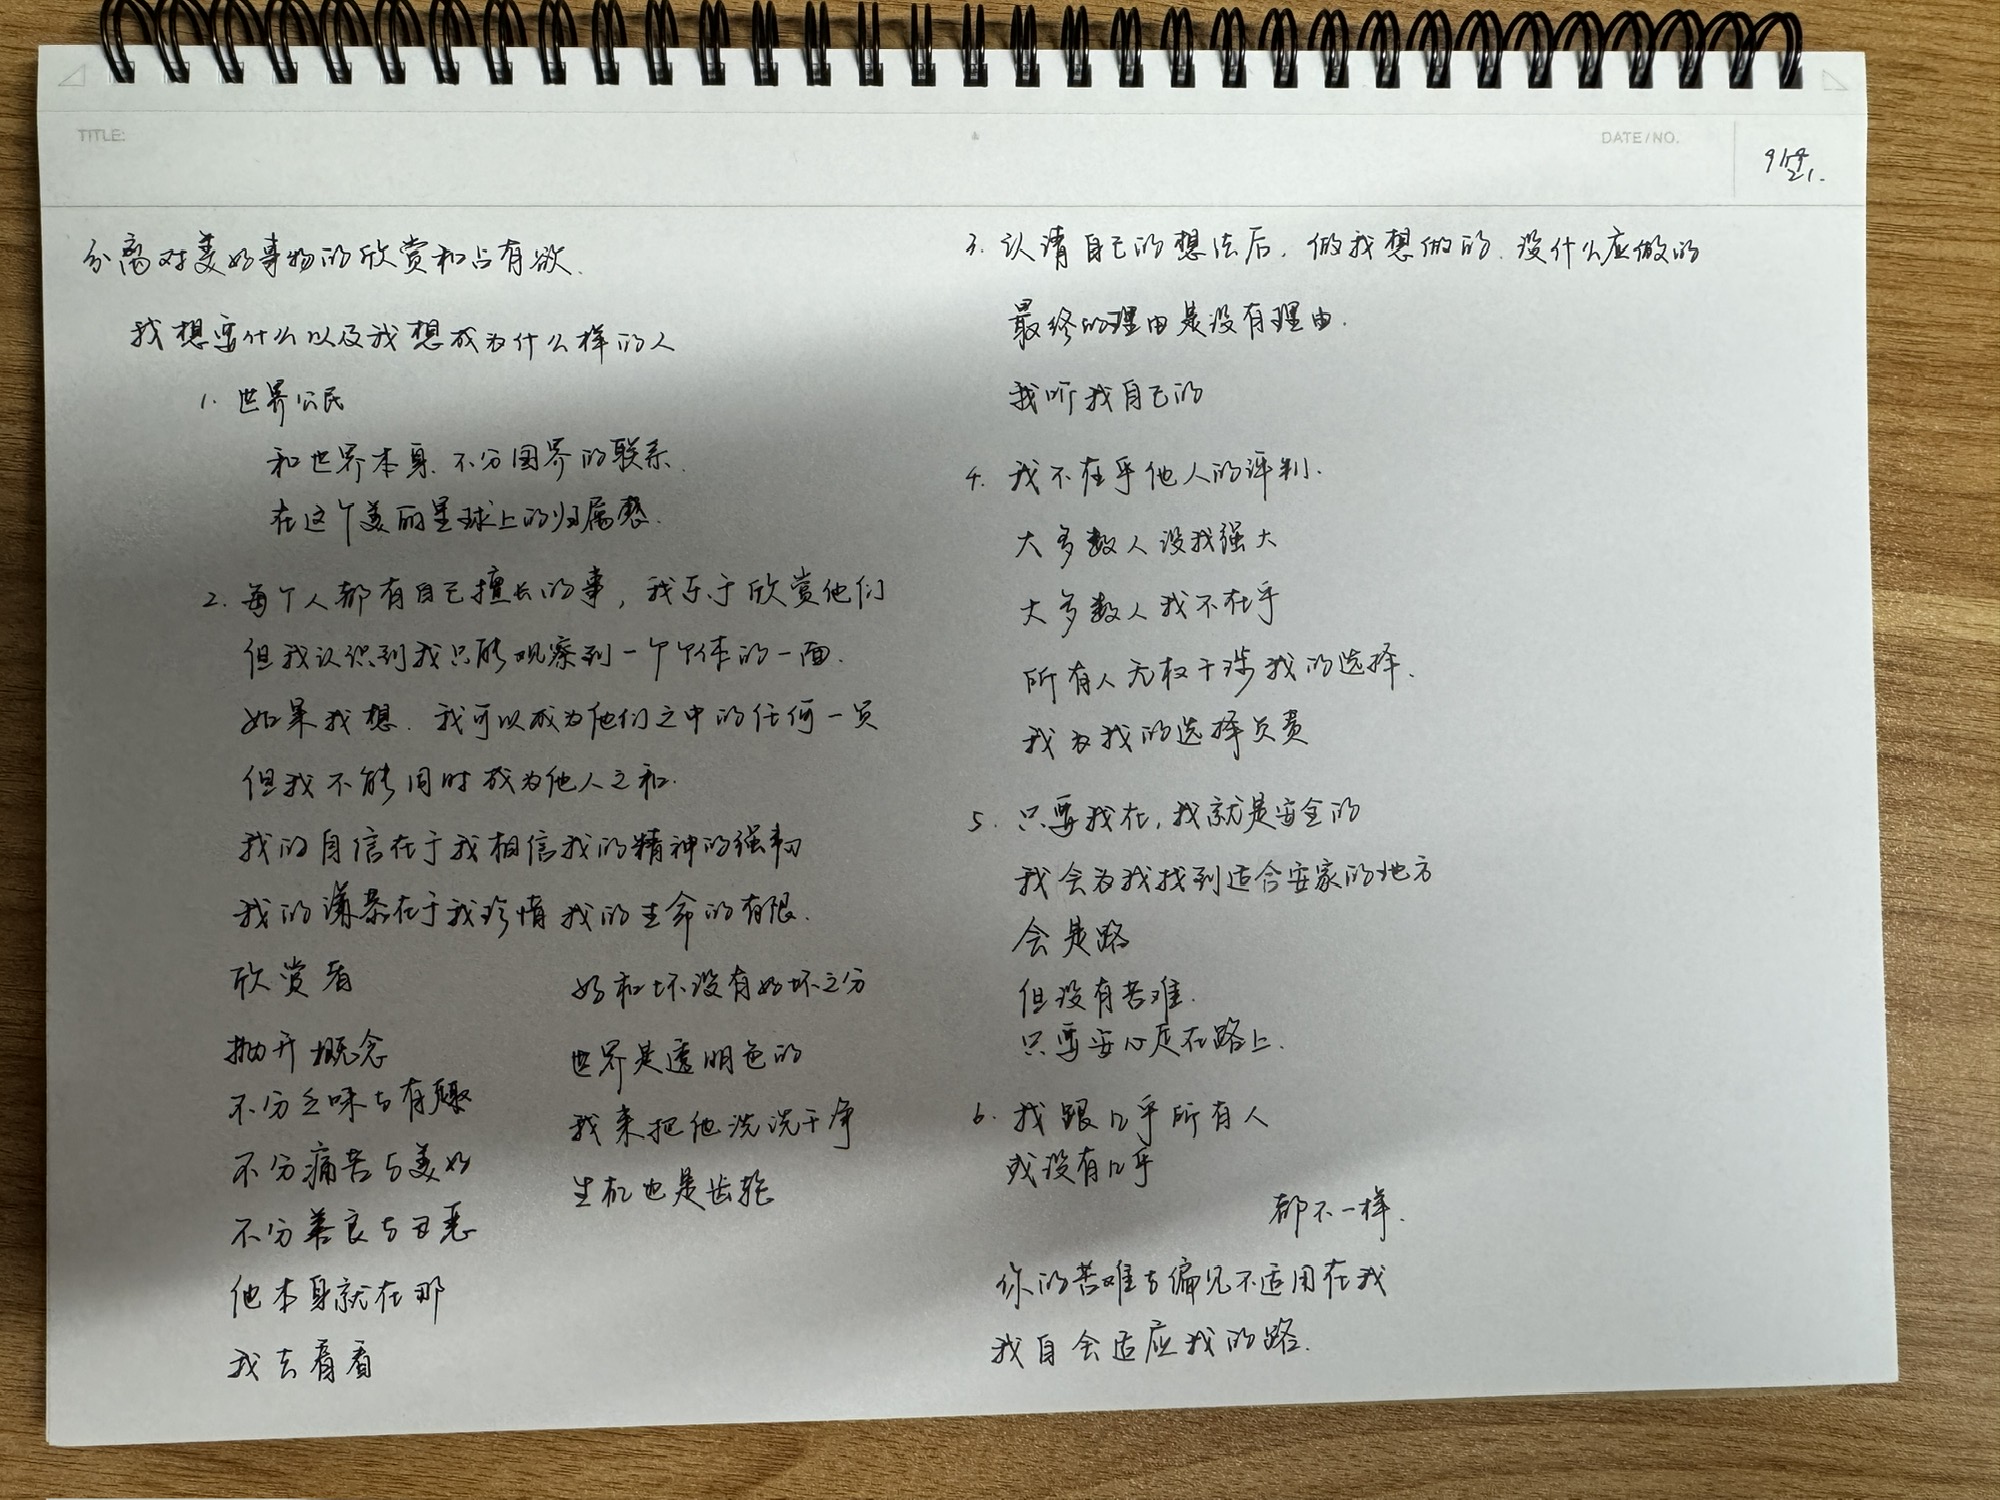 TITLE:
DATE/NO.
21.
分离对美好事物的欣赏和占有欲.
我想要什么以及我想成为什么样的人
1. 世界公民
和世界本身、不分国界的联系.
在这个美丽星球上的归属感.
2. 每个人都有自己擅长的事，我乐于欣赏他们
但我认识到我只能观察到一个个体的一面.
如果我想、我可以成为他们之中的任何一员
但我不能同时成为他人之和.
我的自信在于我相信我的精神的强韧
我的谦恭在于我珍惜我的生命的有限.
欣赏着
抛开概念
不分乏味与有趣
不分痛苦与美好
不分善良与丑恶
他本身就在那
我去看看
好和坏没有好坏之分
世界是透明色的
我来把他洗洗干净
生机也是齿轮
3. 认清自己的想法后、做我想做的、没什么应做的
最终的理由是没有理由.
我听我自己的
4. 我不在乎他人的评判.
大多数人没我强大
大多数人我不在乎
所有人无权干涉我的选择.
我为我的选择负责
5. 只要我在，我就是安全的
我会为我找到适合安家的地方
会是路
但没有苦难.
只要安心走在路上.
6. 我跟几乎所有人
或没有几乎
都不一样.
你的苦难与偏见不适用在我
我自会适应我的路.